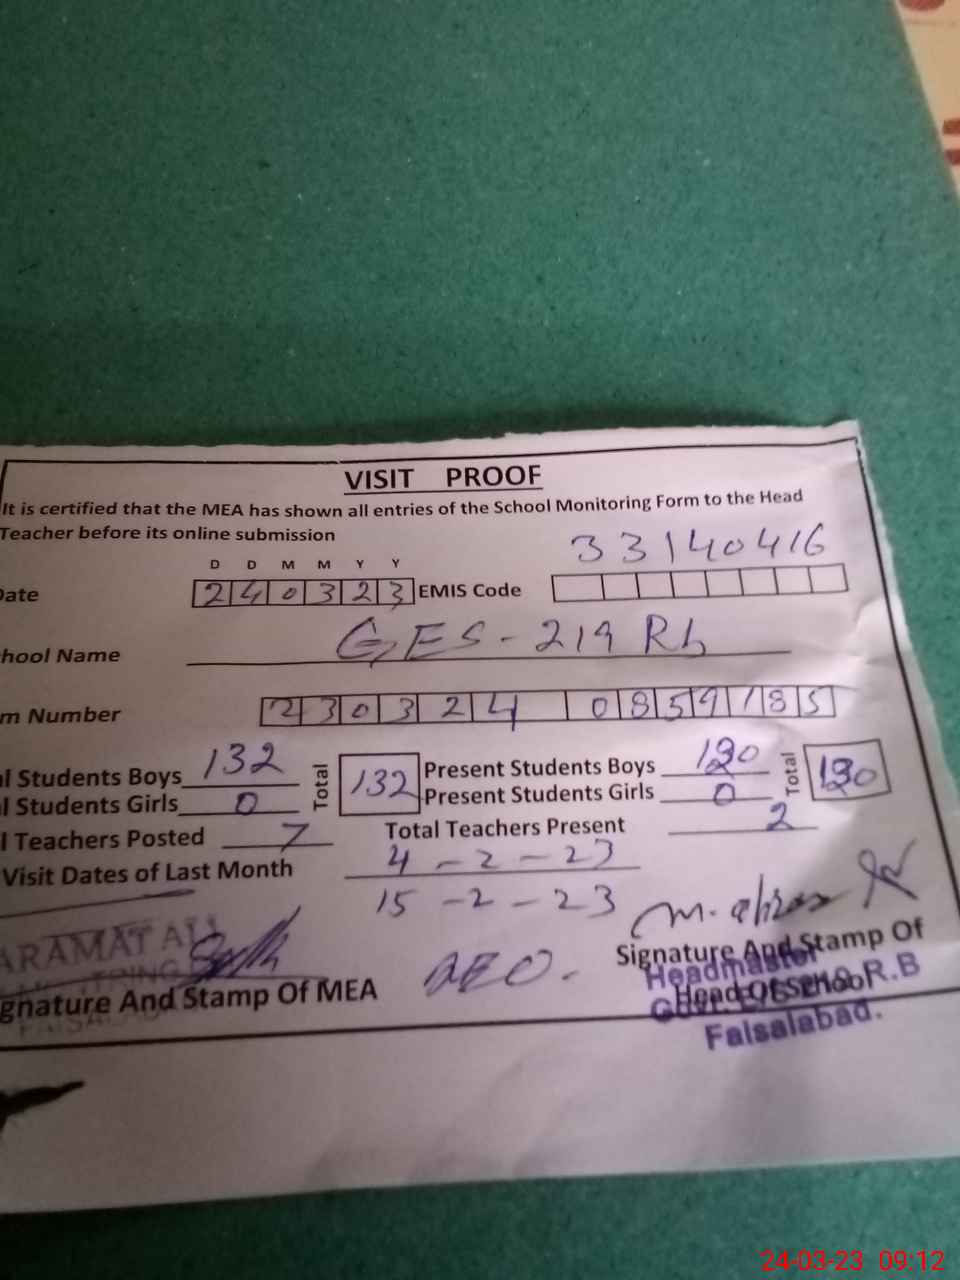 VISIT PROOF
It is certified that the MEA has shown all entries of the School Monitoring Form to the Head
Teacher before its online submission
D D M M Y Y
33140416
ate 240323 EMIS Code
hool Name GES-219 Rb
m Number 230324 0859185
l Students Boys 132 Total 132 Present Students Boys 130 Total 130
l Students Girls 0 Present Students Girls 0
l Teachers Posted 7 Total Teachers Present 2
Visit Dates of Last Month 4-2-23
15-2-23
ARAMAT ALI
AEO.
gnature And Stamp Of MEA
Signature And Stamp Of
Head Of School
Headmaster
R.B
Faisalabad.
24-03-23 09:12